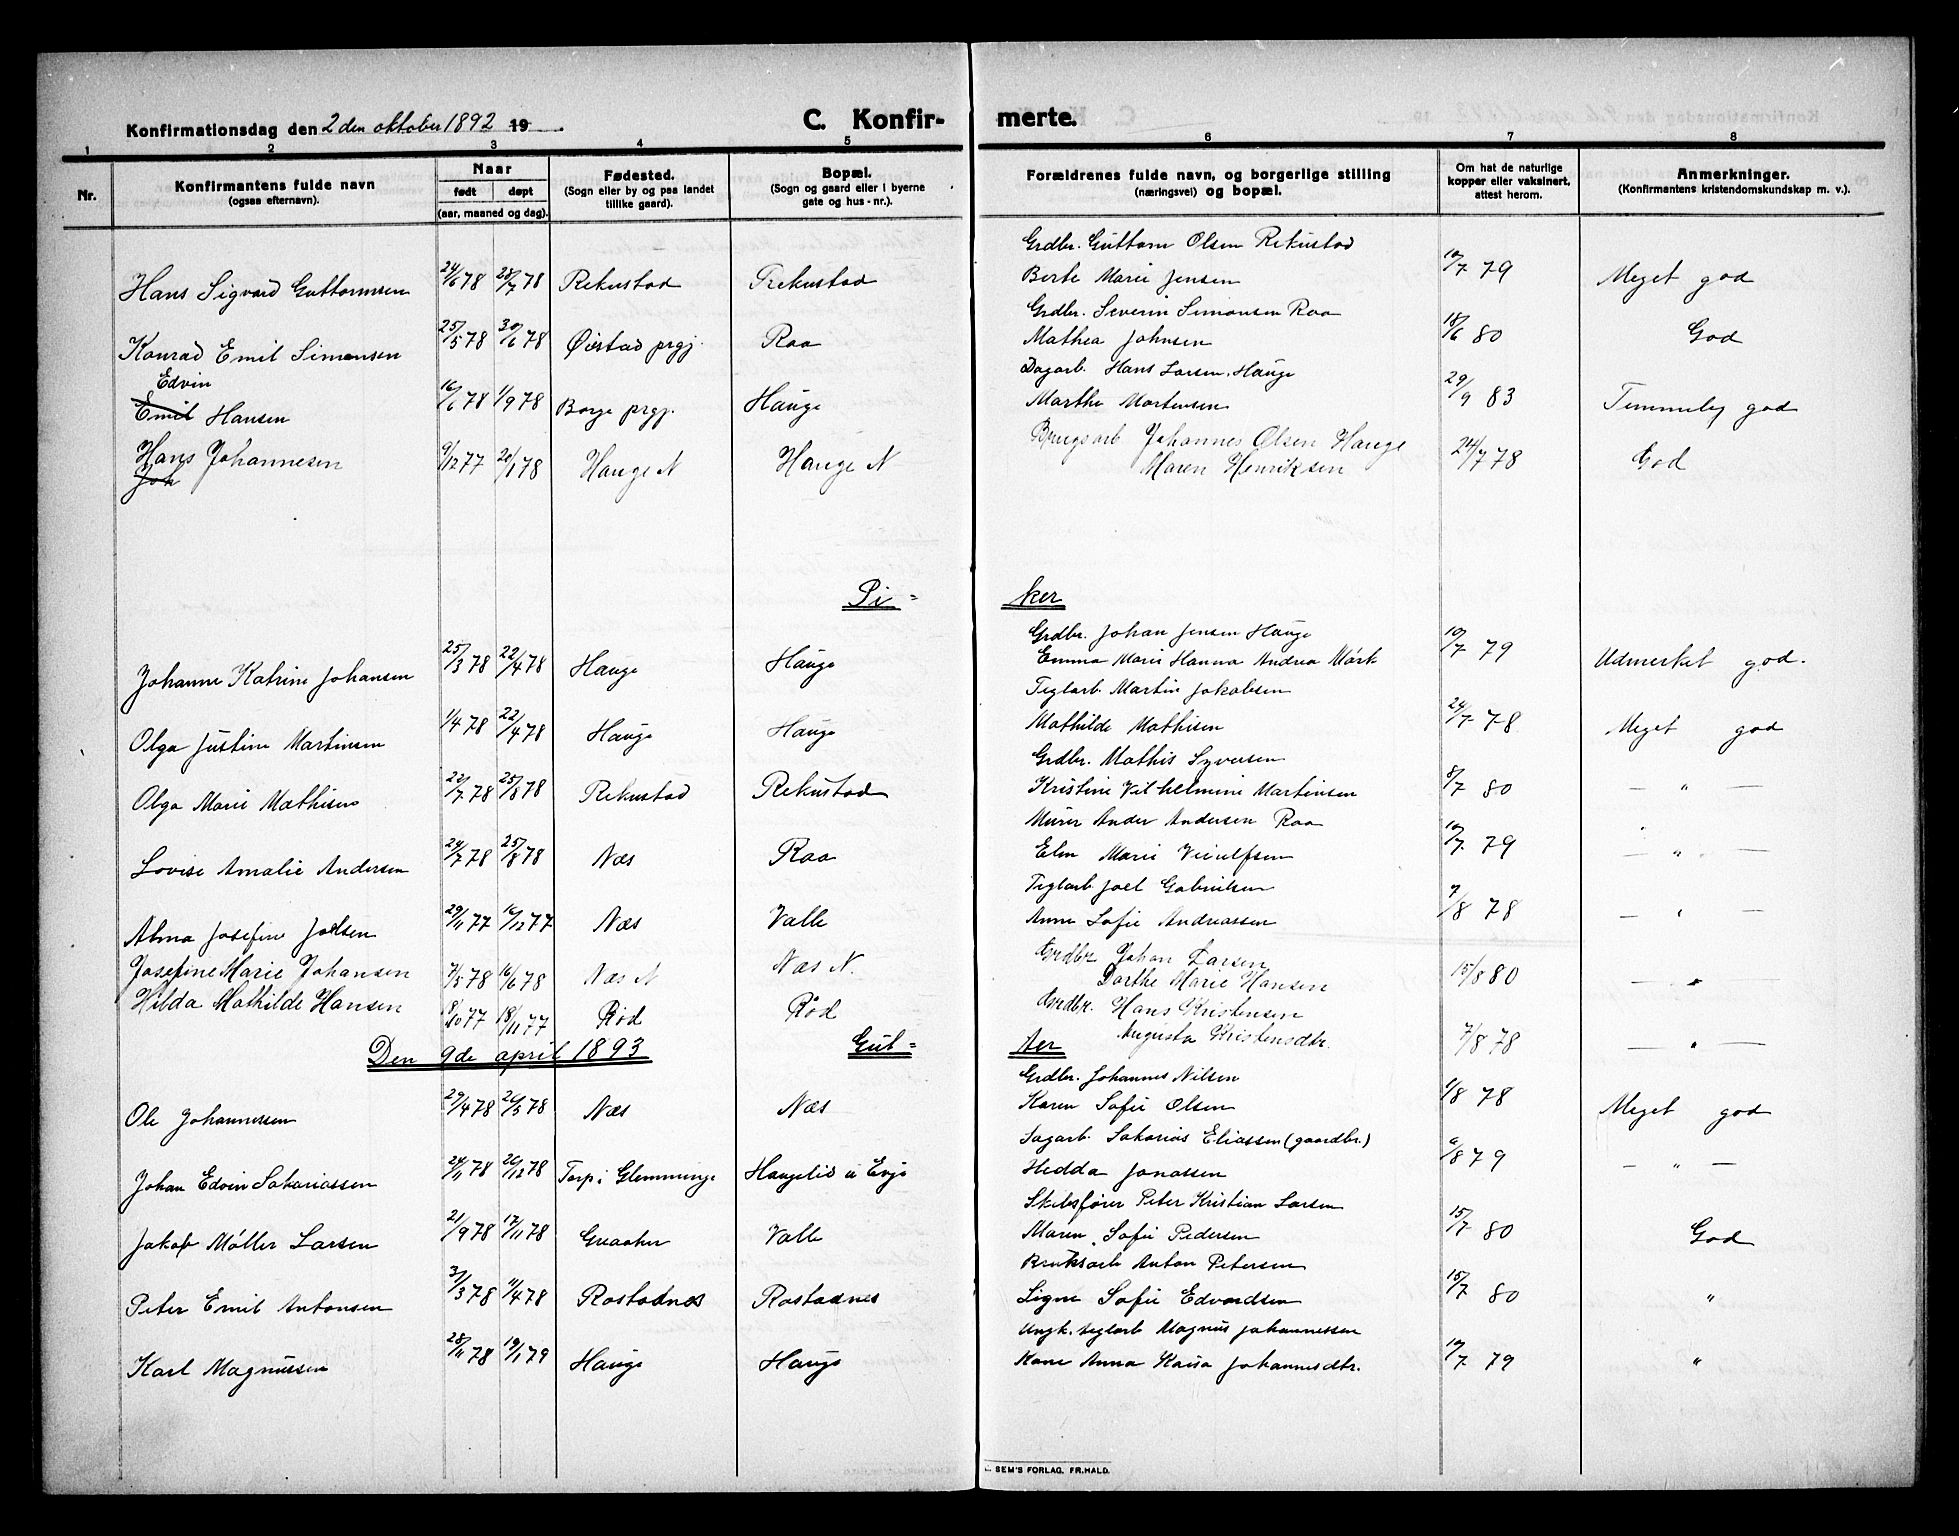 Konfirmationsdag den 2 den oktober 1892 19
C. Konfir-
merte.
1 2 3 4 5 6 7 8
Nr.
Konfirmantens fulde navn
(ogsaa efternavn).
Naar
født døpt
(aar, maaned og dag).
Fødested.
(Sogn eller by og paa landet
tillike gaard).
Bopæl.
(Sogn og gaard eller i byerne
gate og hus-nr.).
Forældrenes fulde navn, og borgerlige stilling
(næringsvei) og bopæl.
Om hat de naturlige
kopper eller vaksinert,
attest herom.
Anmerkninger.
(Konfirmantens kristendomskundskap m. v.).
Grdbr. Guttorm Olsen Rekustad
Hans Sigvard Guttormsen 24/6 78 28/7 78 Rekustad Rekustad Berte Marie Jensen 10/7 79 Meget god
Grdbr. Severin Simonsen Raa
Konrad Emil Simonsen 25/5 78 30/6 78 Øistad prgj. Raa Mathea Johnsen 18/6 80 God
Edvin Dagarb. Hans Larsen, Hauge
Emil Hansen 16/6 78 1/9 78 Borge prgj. Hauge Marthe Mortensen 29/9 83 Temmelig god
Brugsarb Johannes Olsen Hauge
Hans Johannesen 9/12 77 20/1 78 Hauge N Hauge N Maren Henriksen 24/7 78 God
Joh
Pi-
ker
Grdbr. Johan Jensen Hauge
Johanne Katrine Johansen 25/3 78 22/4 78 Hauge Hauge Emma Marie Hanna Andrea Mørk 10/7 79 Udmerket god.
Teglarb. Martin Jakobsen
Olga Justine Martinsen 1/4 78 22/4 78 Hauge Hauge Mathilde Mathisen 24/7 78 Meget god
Grdbr. Mathis Syversen
Olga Marie Mathisen 22/7 78 25/8 78 Rekustad Rekustad Kristine Vilhelmine Martinsen 8/7 80 — " —
Murer Ander Andersen Raa
Lovise Amalie Andersen 24/7 78 25/8 78 Næs Raa Elen Marie 10/7 79 — " —
Teglarb. Joel Gabrielsen
Alma Josefine Joelsen 29/11 77 16/12 77 Næs Valle Anne Sofie Andreassen 7/8 78 — " —
Grdbr Johan Larsen
Josefine Marie Johansen 7/5 78 16/6 78 Næs N Næs N. Dorthe Marie Hansen 15/8 80 — " —
Grdbr. Hans Kristensen
Hilda Mathilde Hansen 8/10 77 18/11 77 Rød Rød Augusta Kristensdtr. 7/8 78 — " —
Den 9de april 1893 Gut-
ter
Grdbr. Johannes Nilsen
Ole Johannessen 29/4 78 26/5 78 Næs Næs Karen Sofie Olsen 1/8 78 Meget god
Sagarb. Sakarias Eliassen (gaardbr.)
Johan Edvin Sakariassen 24/11 78 26/12 78 Torp i Glemminge Haugelid u Evje Hedda Jonassen 9/8 79 — " —
Skibsfører Peter Kristian Larsen
Jakob Møller Larsen 21/9 78 17/11 78 Greaaker Valle Maren Sofie Pedersen 15/7 80 God
Bruksarb Anton Petersen
Peter Emil Antonsen 31/3 78 11/4 78 Rostadnes Rostadnes Signe Sofie Edvardsen 15/7 80 "
Ungk. teglarb Magnus Johannessen
Karl Magnussen 28/11 78 19/1 79 Hauge Hauge Kone Anna Kaisa Johannesdtr. 10/7 79 "
SEM'S FORLAG, FR.HALD.